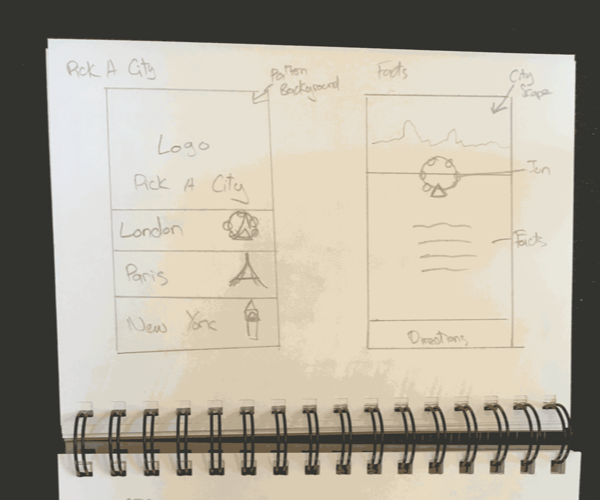 Pick A City
Pattern
Background
Logo
Pick A City
London
Paris
New York
Facts
City
Scape
Icon
Facts
Directions